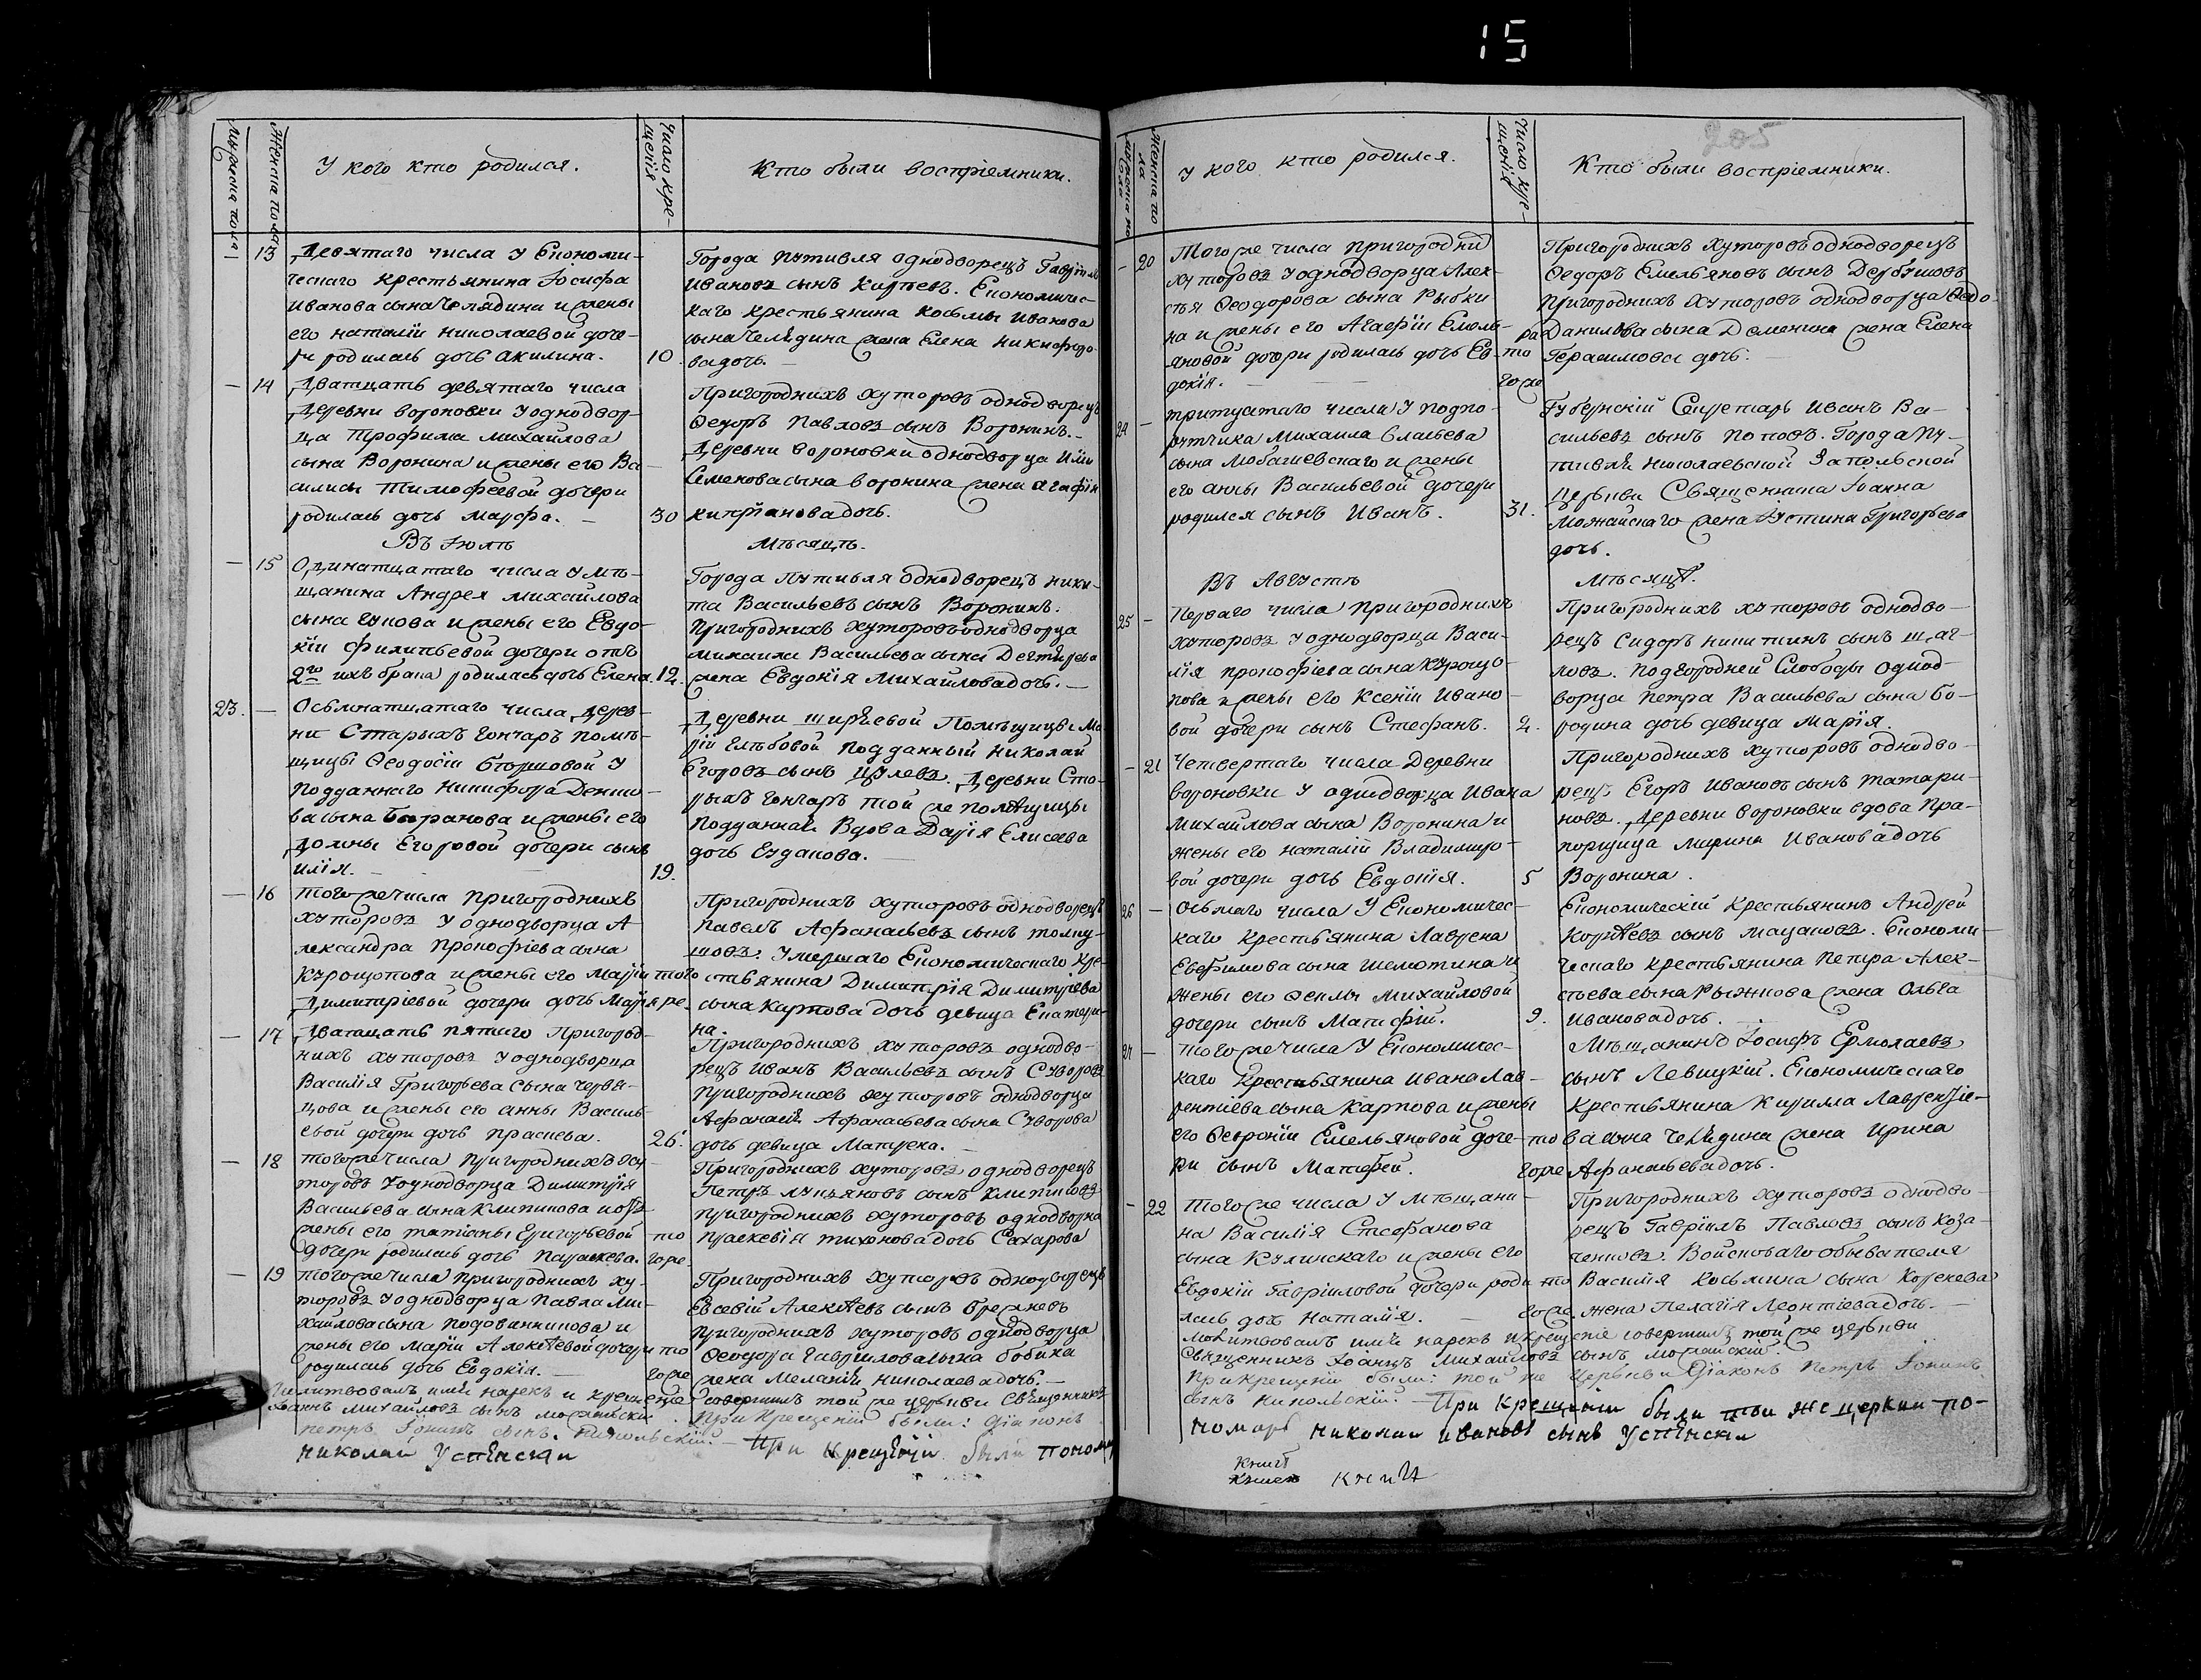 15
205
Мужеска пола
Женска пола
У кого кто родился.
Число кре-
щенія
Кто были воспріемники.
— 13 Девятаго числа У Економи-
ческаго крестьянина Іосифа
Иванова сына Челядина и жены
его наталіи николаевой доче-
ри родилась дочь акилина. 10.
Города путивля однодворецъ Гавріилъ
Ивановъ сынъ Карпевъ. Економичес-
каго крестьянина Косьмы Иванова
сына Челядина жена Елена никифоро-
ва дочь.
— 14 Дватцать девятаго числа
Деревни вороновки У однодвор-
ца Трофима михайлова
сына Воронина и жены его Ва-
силисы Тимофеевой дочери
родилась дочь марфа. — 30
Пригороднихъ хуторовъ однодворецъ
Федоръ Павловъ сынъ Воронинъ. —
Деревни вороновки однодворца Иліи
Семенова сына воронина жена агафія
кипріанова дочь.
Въ Іюлѣ
Мѣсяцѣ.
— 15 Одинатцатаго числа У мѣ-
щанина Андрея михайлова
сына гукова и жены его Евдо-
кіи филипьевой дочери отъ
2го ихъ брака родилась дочь Елена. 12.
Города Путивля однодворецъ ники-
та Васильевъ сынъ Воронинъ.
пригороднихъ хуторовъ однодворца
михаила Васильева сына Дегтярева
жена Евдокія михайлова дочь. —
23. — Осьмнатцатаго числа Дерев-
ни Старыхъ гончаръ помѣ-
щицы Феодосіи Бѣгршовой У
подданнаго никифора Дени-
ва сына Баранова и жены его
Домны Егоровой дочери сынъ
илія. — 19.
Деревни ширяевой Помѣщицы Ма
ріи Глѣбовой подданный николай
Егоровъ сынъ Цулевъ. Деревни Ста-
рыхъ гончаръ той же помѣщицы
подданная Вдова Дарія Елисеева
дочь Судакова. —
— 16 того же числа пригороднихъ
хуторовъ У однодворца А
лександра прокофіева сына
Курощопова и жены его маріи того
Димитріевой дочери дочь марія же.
Пригороднихъ хуторовъ однодворецъ
павелъ Афанасьевъ сынъ толпу-
шовъ. Умершаго Економическаго кре-
стьянина Димитрія Димитріева
сына Карпова дочь девица Екатери-
на.
— 17 Дватцать пятаго Пригород-
нихъ хуторовъ У однодворца
Василія Григорьева сына черве-
цова и жены его анны Василь-
евой дочери дочь праскева. 26.
Пригороднихъ хуторовъ однодво-
рецъ иванъ Васильевъ сынъ Суворовъ
пригороднихъ хуторовъ однодворца
Афанасія Афанасьева сына Суворова
дочь девица Матрена.
— 18 того же числа пригороднихъ ху-
торовъ У однодворца Димитрія
Васильева сына Клипикова и
жены его татіаны григорьевой то
дочери родилась дочь параскева. го же.
Пригороднихъ хуторовъ однодворецъ
Петръ лукьяновъ сынъ Клипиковъ
пригороднихъ хуторовъ однодворка
праскевія тихонова дочь Сахарова
— 19 того же числа пригороднихъ ху-
торовъ У однодворца павла ми-
хайлова сына подованникова и
жены его маріи Алексѣевой дочери то
родилась дочь Евдокія. — го же
Пригороднихъ хуторовъ однодворецъ
Евсевій Алексѣевъ сынъ брежневъ
пригороднихъ хуторовъ однодворца
Феодора гавриилова сына бобина
жена меланія николаева дочь. —
молитвовалъ имя нарекъ и крещеніе совершилъ той же церькви Священникъ
Іоаннъ михайловъ сынъ можайскій. При крещеніи были: діаконъ
петръ Іонинъ сынъ никольскій. — При крещеніи были поном
николай Успенски
Мужеска по
ла
Женска по
ла
У кого кто родился.
Число кре-
щенія
Кто были воспріемники.
— 20 Того же числа пригородни
хуторовъ У однодворца Алек-
сѣя Феодорова сына Рыбки
на и жены его Агафіи Емель-
яновой дочери родилась дочь Ев- то
докія. — го же
Пригороднихъ хуторовъ однодворецъ
Федоръ Емельяновъ сынъ Дербушовъ
пригороднихъ хуторовъ однодворца Федо-
ра Данилова сына Деменина жена Елена
Герасимова дочь. —
24 — тритцатаго числа У подпо-
рутчика Михаила Елисеева
сына Мобашевскаго и жены
его анны Васильевой дочери
родился сынъ Иванъ. 31.
Губернскій Секретарь Иванъ Ва-
сильевъ сынъ поповъ. Города пу-
тивля николаевской Запольской
церькви Священника Іоанна
можайскаго жена Устина Григорьева
дочь.
Въ Августѣ
мѣсяцѣ.
25 — Перваго числа пригороднихъ
хуторовъ У однодворца Васи-
лія прокофіева сына Курощо-
пова и жены его Ксеніи ивано-
вой дочери сынъ Стефанъ. 2.
Пригороднихъ хуторовъ однодво-
рецъ Сидоръ никитинъ сынъ щаг-
ловъ. Подгородней Слободы однод-
ворца петра Васильева сына бо-
родина дочь девица марія.
— 21 Четвертаго числа Деревни
вороновки У однодворца Ивана
михайлова сына Воронина и
жены его наталіи Владимиро-
вой дочери дочь Евдокія. 5
Пригороднихъ хуторовъ однодво-
рецъ Егоръ Ивановъ сынъ татари-
новъ. Деревни вороновки вдова пра-
порщица марина Иванова дочь
Воронина.
26 — Осьмаго числа У Економичес-
каго крестьянина Лаврена
Евфимова сына шелютина и
жены его Феклы михайловой
дочери сынъ Матфій. 9.
Економическій крестьянинъ Андрей
Корнѣевъ сынъ мацаковъ. Економи-
ческаго крестьянина петра Алек-
сѣева сына Рыжкова жена Ольга
иванова дочь.
27 — того же числа У Економичес-
каго крестьянина ивана Лав-
рентіева сына Карпова и жены
его Февроніи Емельяновой доче- то
ри сынъ матфей. го же
Мѣщанинъ Іосифъ Ермолаевъ
сынъ Левицкій. Економическаго
крестьянина Кирилла Лаврентіе-
ва сына Челядина жена Ирина
Афанасьева дочь.
— 22 того же числа У мѣщани-
на Василія Стефанова
сына Кулинскаго и жены его
Евдокіи гавріиловой дочери роди то
лась дочь наталія. — го же.
Пригороднихъ хуторовъ однодво-
рецъ Гавріилъ Павловъ сынъ коза-
ченковъ. Войсковаго обывателя
Василія Косьмина сына Коренева
жена Пелагія Леонтіева дочь. —
молитвовалъ имя нарекъ и крещеніе совершилъ той же церькви
Священникъ Іоаннъ михайловъ сынъ можайскій.
При крещеніи были: той же Церькви Діаконъ петръ Іонинъ
сынъ никольскій. — При Крещеніи были той же церкви по-
номарь николаи ивановъ сынъ Успенски
книгѣ
книгѣ